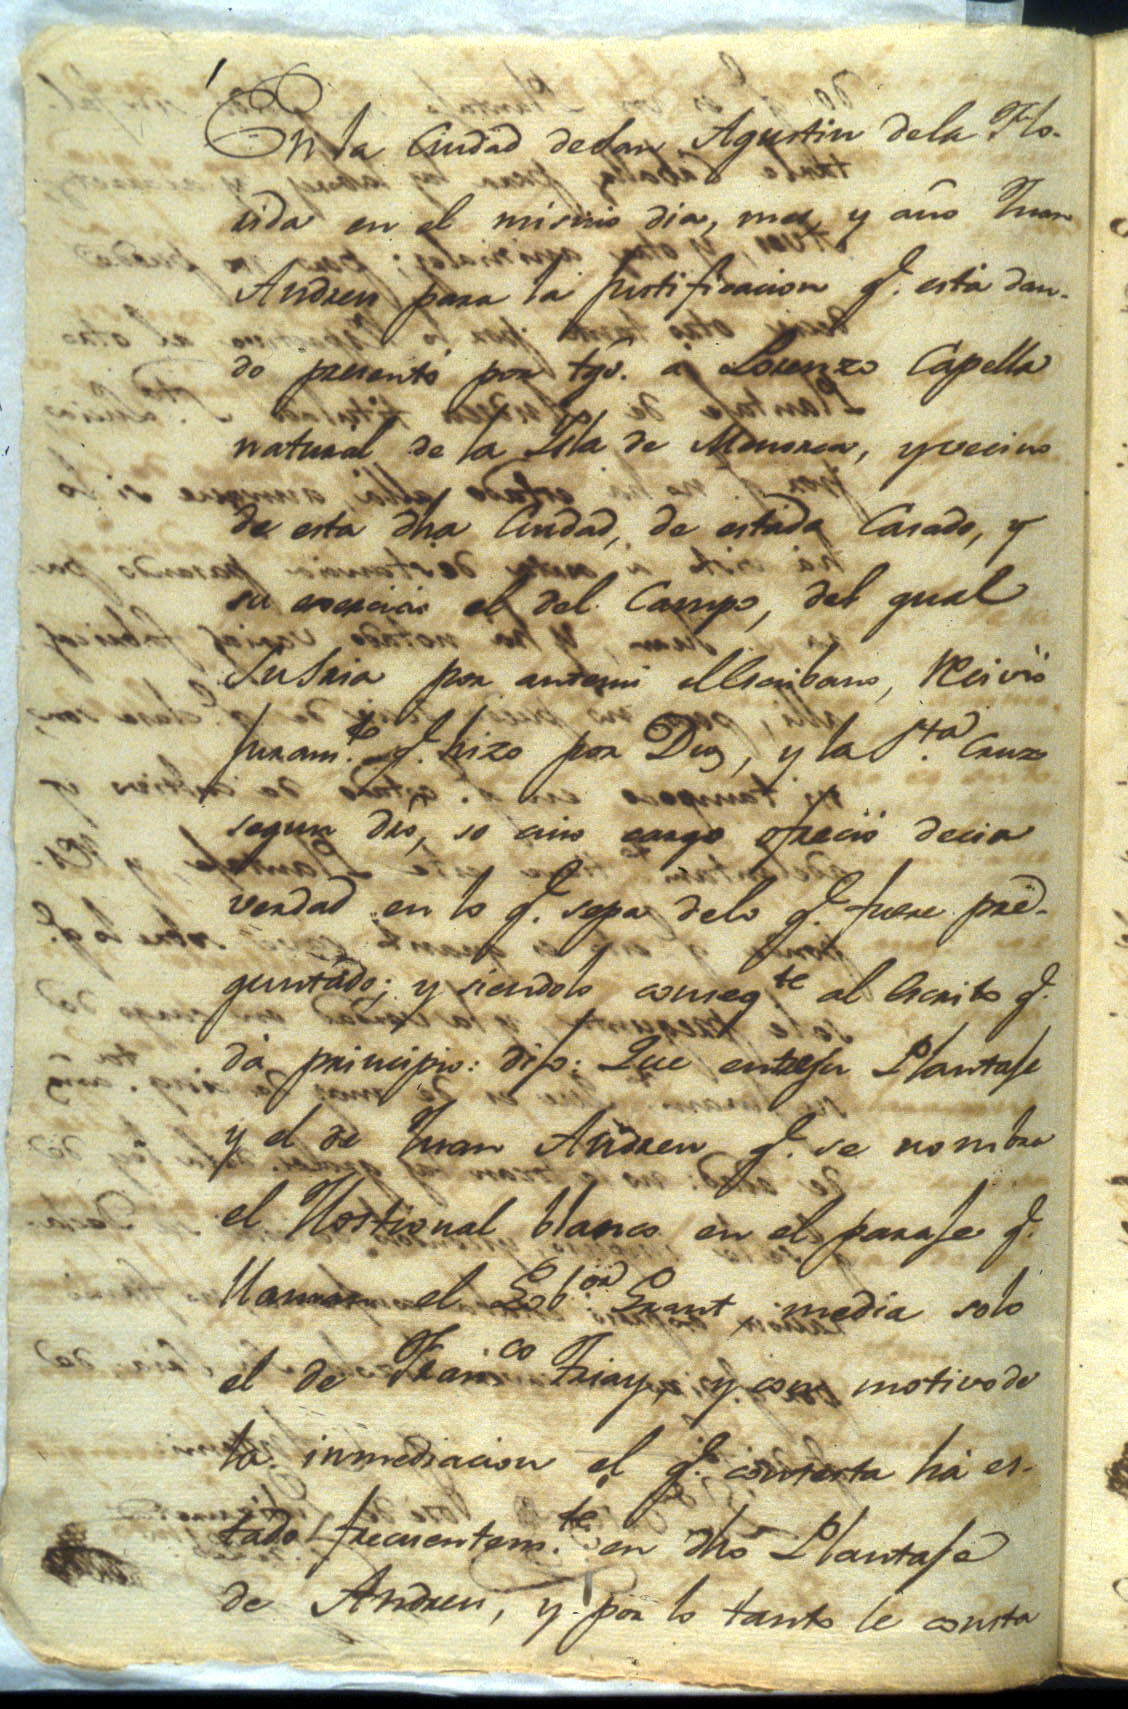 En la Ciudad de San Agustin dela Flo-
rida en el mismo dia, mes, y año Juan
Andreu para la justificacion q.e está dan-
do presentó por tgô. á Lorenzo Capella
natural de la Isla de Menorca, y vecino
de esta dha Ciudad, de estado Casado, y
su exercicio el del Campo, del qual
Su Sria por antemi el Escribano, Recivió
juram.to q.e hizo por Dios, y la S.ta Cruz
segun dro, so cuio cargo ofreció decir
verdad en lo q.e sepa delo q.e fuere pre-
guntado; y siendolo conseq.te al Escrito q.e
dá principio: dijo: Que entre su Plantaje
y el de Juan Andreu q.e se nombra
el Hostional blanco en el paraje q.e
llaman el Gob.or Grant, media solo
el de Fran.co Triay, y con motivo de
la inmediacion el q.e contexta há es-
tado frecuentem.te en dho Plantaje
de Andreu, y por lo tanto le consta